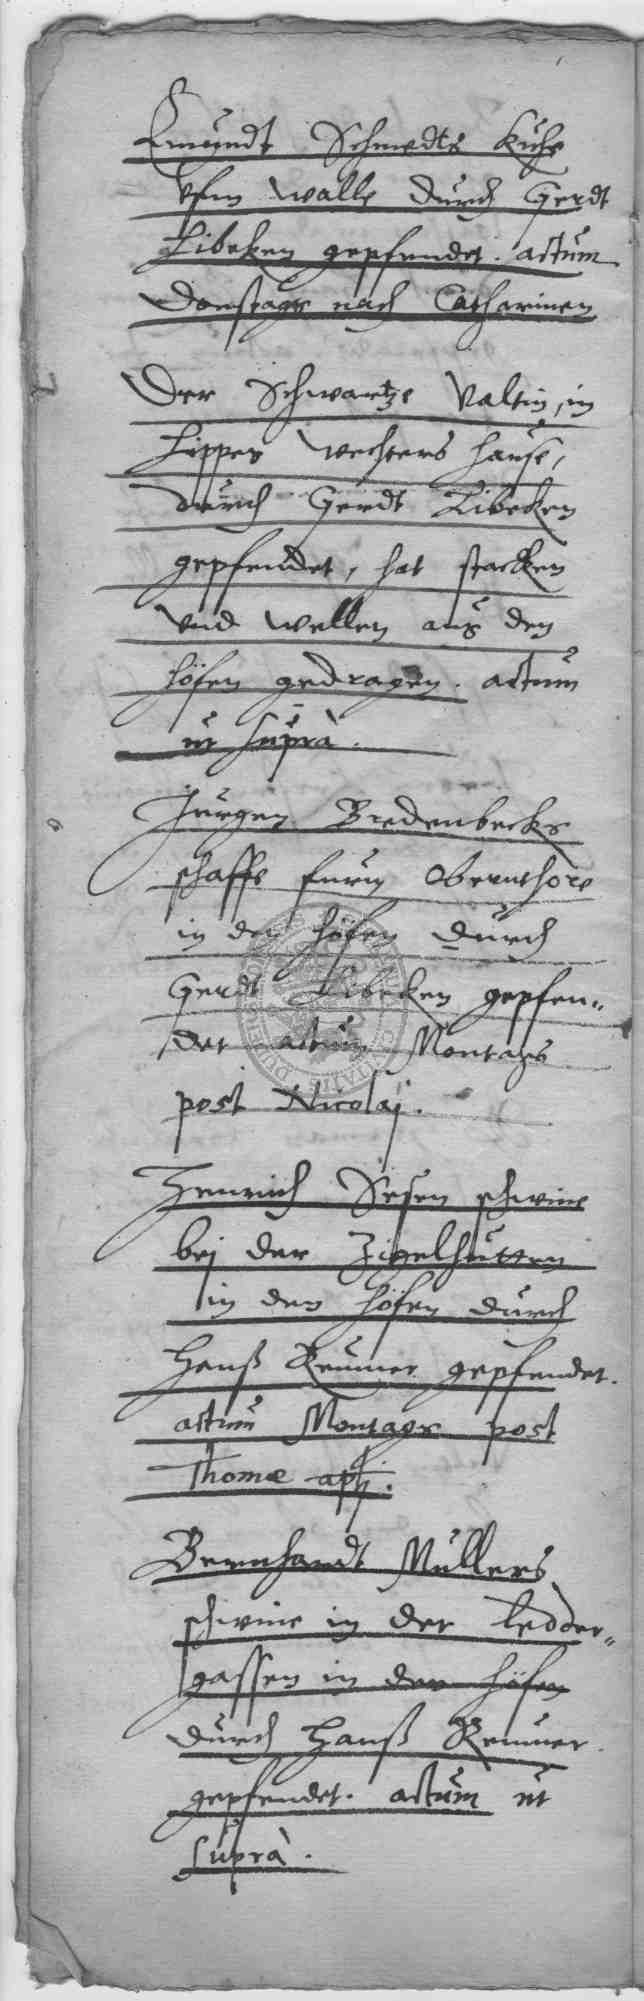 Emundt Schmedts Kuhe
vfm walle durch Gerdt
Libeken gepfendet. actum
Donstags nach Catharinen
Der Schwartze Valtin, in
Lipper wechters hause,
durch Gerdt Libeken
gepfendet, hat stacken
vnd wellen aus den
höfen gedragen. actum
ut suprà.
Jurgen Bredenbecks
schaffe furm Obernthore
in den höfen durch
Gerdt Libeken gepfen„
det actum Montags
post Nicolaj.
Henrich Sesen schwine
bej der Zigelhutten
in den höfen durch
Hanß Remmer gepfendet.
actum Montags post
Thomæ apłi.
Bernhardt Mullers
schwine in der Ledder„
gassen in den höfen
durch Hanß Remmer
gepfendet. actum ut
suprà.